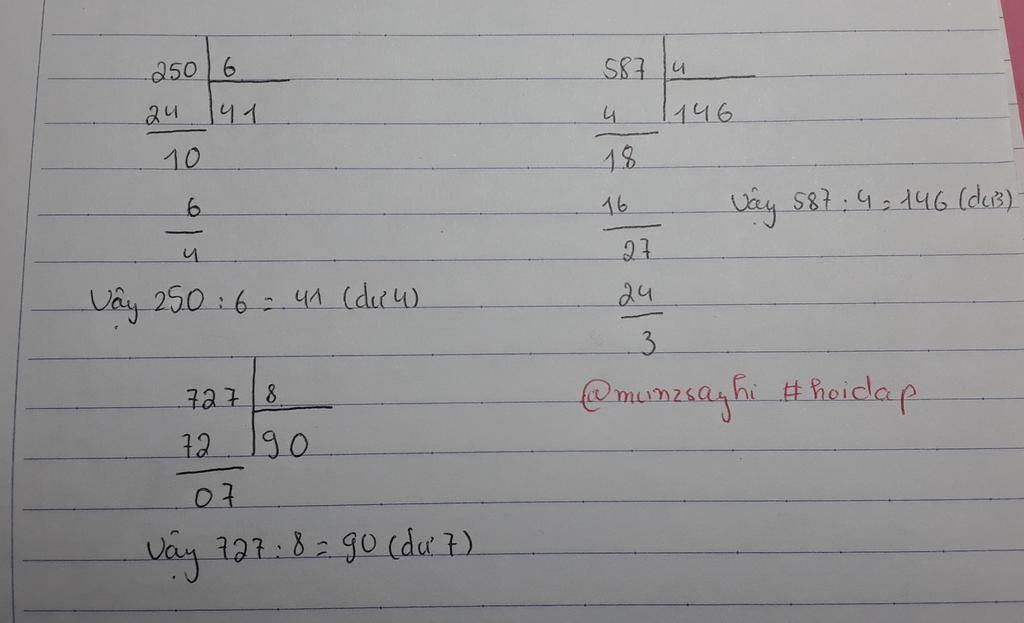 250 6
24 41
10
6
4
Vậy 250 : 6 = 41 (dư 4)
587 4
4 146
18
16
27
24
3
Vậy 587 : 4 = 146 (dư 3)
727 8
72 90
07
Vậy 727 : 8 = 90 (dư 7)
@munzsaghi #hoidap